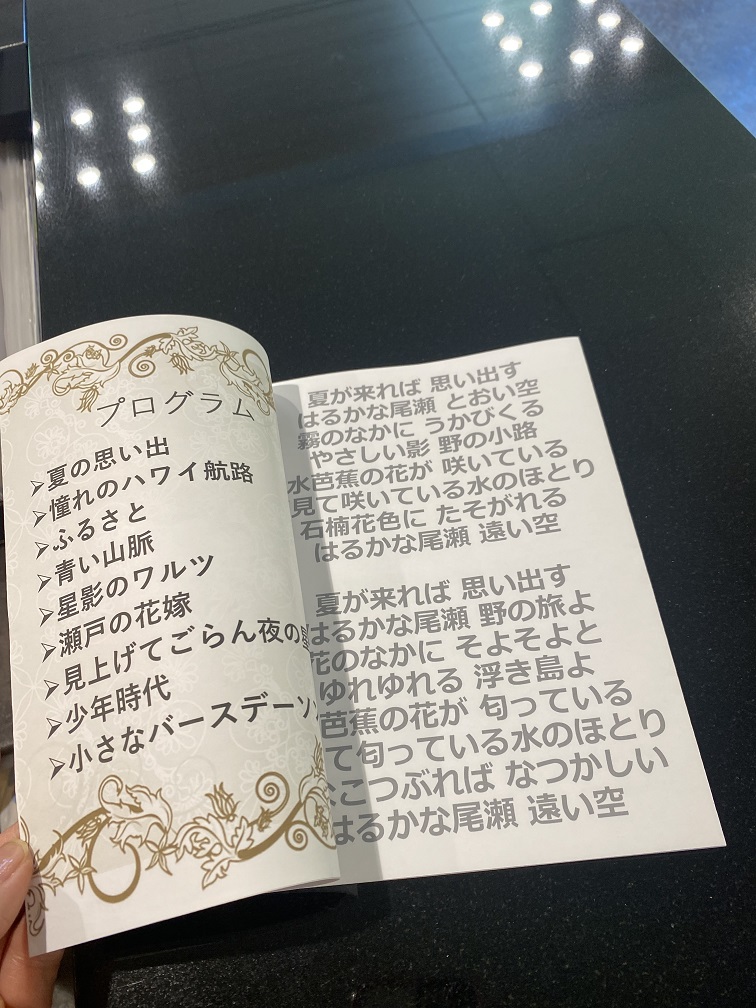 プログラム
➢夏の思い出
➢憧れのハワイ航路
➢ふるさと
➢青い山脈
➢星影のワルツ
➢瀬戸の花嫁
➢見上げてごらん夜の星
➢少年時代
➢小さなバースデーソ
夏が来れば 思い出す
はるかな尾瀬 とおい空
霧のなかに うかびくる
やさしい影 野の小路
水芭蕉の花が 咲いている
見て咲いている水のほとり
石楠花色に たそがれる
はるかな尾瀬 遠い空
夏が来れば 思い出す
はるかな尾瀬 野の旅よ
花のなかに そよそよと
ゆれゆれる 浮き島よ
芭蕉の花が 匂っている
て匂っている水のほとり
こつぶれば なつかしい
はるかな尾瀬 遠い空